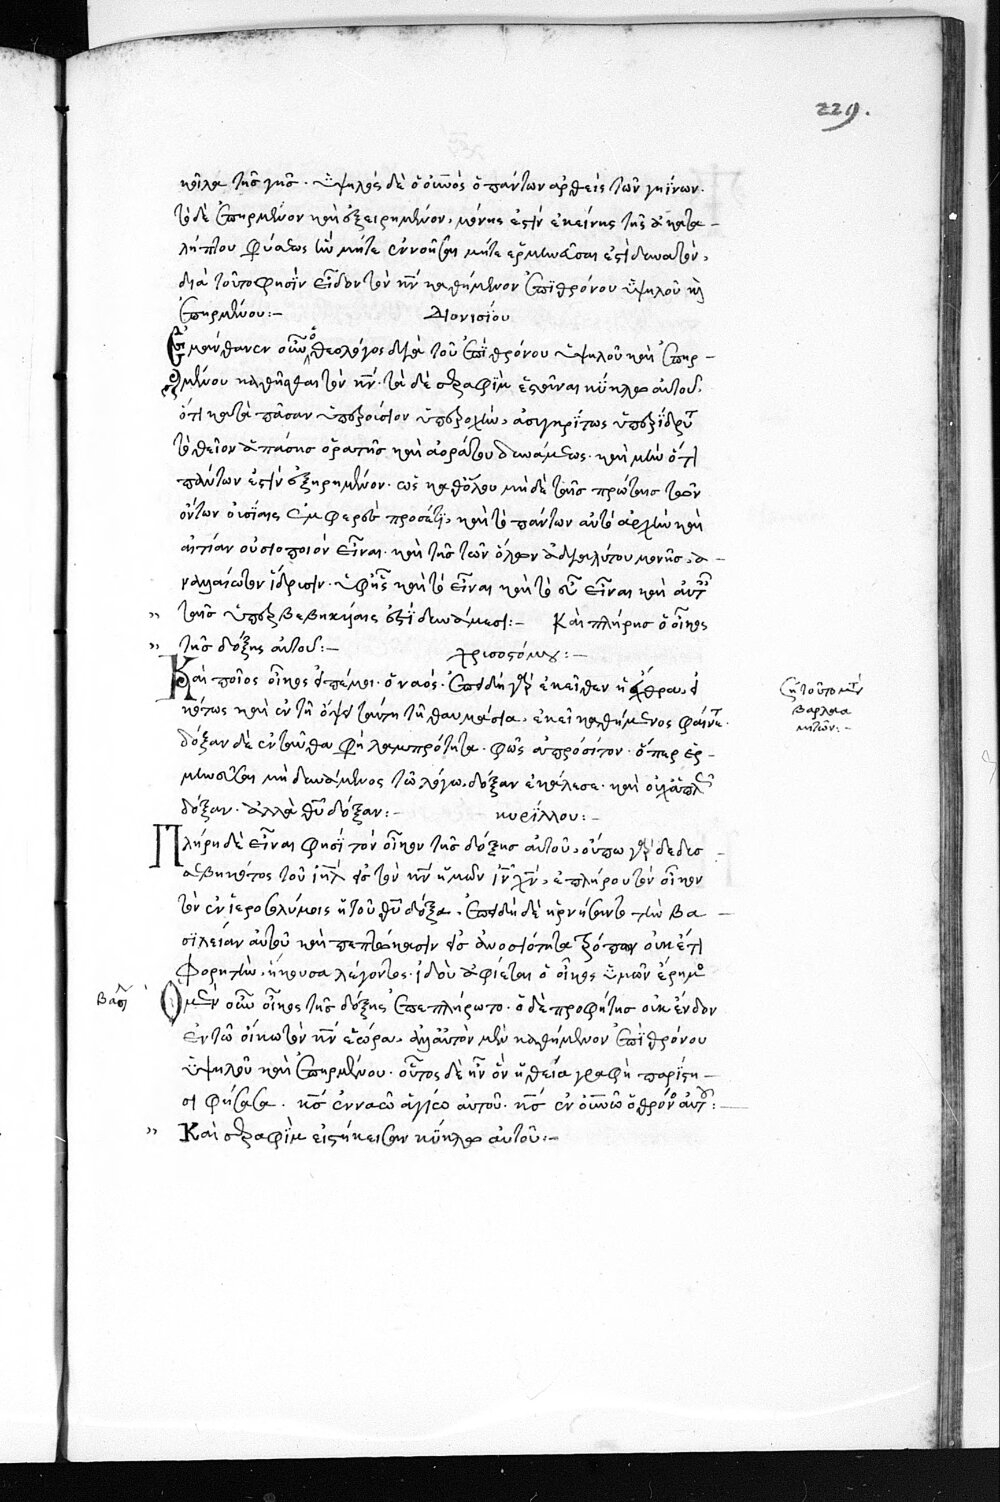 229.
κοῖλα τῆς γῆς. ὑψηλὸς δὲ ὁ οὐνὸς ὁ πάντων ἀρθεὶς τῶν γηίνων.
τὸ δὲ ἐπηρμένον καὶ ἐξειρημένον, μόνης ἐστὶν ἐκείνης τῆς ἀκατα-
λήπτου φύσεως ἣν μήτε ἐννοῆσαι μήτε ἑρμηνεῦσαι ἐστὶ δυνατὸν,
διὰ τοῦτο φησὶν εἶδον τὸν κν καθήμενον ἐπὶ θρόνου ὑψηλοῦ καὶ
ἐπηρμένου:- Διονισίου
Ἐμάνθανεν οὖν ὁ θεολόγος διὰ τοῦ ἐπὶ θρόνου ὑψηλοῦ καὶ ἐπηρ-
μένου καθῆσθαι τὸν κν. τὰ δὲ σεραφὶμ ἑστάναι κύκλῳ αὐτοῦ.
ὅτι κατὰ πᾶσαν ὑπερούσιον ὑπεροχὴν, ἀσυγκρίτως ὑπερίδρυται
τὸ θεῖον ἁπάσης ὁρατῆς καὶ ἀοράτου δυνάμεως. καὶ μὴν ὅτι
πάντων ἐστὶν ἐξηρημένον. ὡς καθόλου μηδὲ ταῖς πρώταις τῶν
ὄντων οὐσίαις ἐμφερὲς προσέτι, καὶ τὸ πάντων αὐτὸ ἀρχὴν καὶ
αἰτίαν οὐσιοποιὸν εἶναι. καὶ τῆς τῶν ὅλων ἀδιαλύτου μονῆς, ἀ-
ναλλοίωτον ἵδρυσιν. ὑφ' ἧς καὶ τὸ εἶναι καὶ τὸ εὖ εἶναι καὶ αὐταῖς
ταῖς ὑπερβεβηκυίαις ἐστὶ δυνάμεσι:- Καὶ πλήρης ὁ οἶκος
τῆς δόξης αὐτοῦ:- χρισοστόμου:-
Καὶ ποῖος οἶκος εἰπέ μοι. ὁ ναός. ἐπειδὴ γὰρ ἐκεῖθεν ἡ ἔχθρα, εἰ
κότως καὶ ἐν τῆ ὄψει ταύτη τῆ θαυμάσια, ἐκεῖ καθήμενος φαίνεται.
δόξαν δὲ ἐνταῦθα φὴ λαμπρότητα. φῶς ἀπρόσιτον. ὅπερ ἑρ-
μηνεῦσαι μὴ δυνάμενος τῶ λόγω, δόξαν ἐκάλεσε. καὶ οὐχ ἁπλῶς
δόξαν. ἀλλὰ θυ δόξαν:- κυρίλλου:-
Πλήρη δὲ εἶναι φησὶ τὸν οἶκον τῆς δόξης αὐτοῦ, οὔπω γὰρ δεδυσ-
σεβηκότος τοῦ ιηλ εἰς τὸν κν ἡμῶν ιν χν, ἐπλήρου τὸν οἶκον
τὸν ἐν ἱεροσολύμοις ἡ τοῦ θυ δόξα. ἐπειδὴ δὲ ἠρνήσαντο τὴν βα-
σιλείαν αὐτοῦ καὶ πεπτώκασιν εἰς ἀνοσιότητα τρόπων οὐκ ἔτι
φορητὴν, ἤκουσα λέγοντος. ἰδοὺ ἀφίεται ὁ οἶκος ὑμῶν ἔρημος
Ὁ μὲν οὖν οἶκος τῆς δόξης ἐπεπλήρωτο. ὁ δὲ προφήτης οὐκ ἔνδον
ἐν τῶ οἴκω τὸν κν ἑώρα, ἀλλ' αὐτὸν μὲν καθήμενον ἐπὶ θρόνου
ὑψηλοῦ καὶ ἐπηρμένου. οὗτος δὲ ἦν ὃν ἡ θεία γραφὴ παρίστη-
σι φήσασα. κς ἐν ναῶ ἁγίω αὐτοῦ. κς ἐν οὐνῶ ὁ θρόνος αὐτοῦ:
Καὶ σεραφὶμ εἱστήκεισαν κύκλω αὐτοῦ:-
ζη τοῦτο μετὰ
Βαρλαα
μιτῶν:-
Βασι